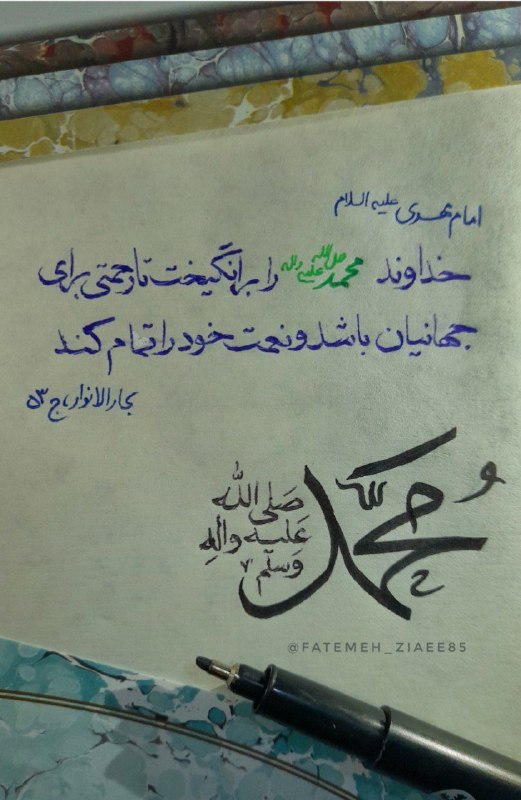 امام مهدی علیه السلام
خداوند محمد صلی الله علیه وآله را برانگیخت تا رحمتی برای
جهانیان باشد و نعمت خود را تمام کند
بحارالانوار، ج ۵۳
مُحمّد
صَلی الله
عَلیه وآلهِ
وَسلم
@FATEMEH_ZIAEE85